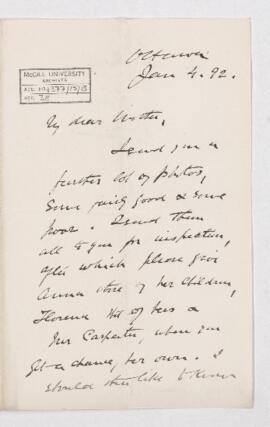 Ottawa
Jan 4. 92.
McGILL UNIVERSITY
ARCHIVES
ACC.
REF. 38
My dear Mother,
I send you a
further lot of photos,
some fairly good & some
poor. I send them
all to you for inspection,
after which please give
Anna those of her children,
Florence that of hers &
Mrs Carpenter, when you
get a chance, her own. I
should also like to know